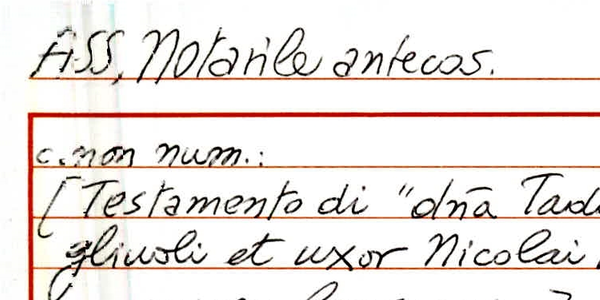 ASS, Notarile antecos.
c. non num.:
[Testamento di "dñā Tad
gliuoli et uxor Nicolai